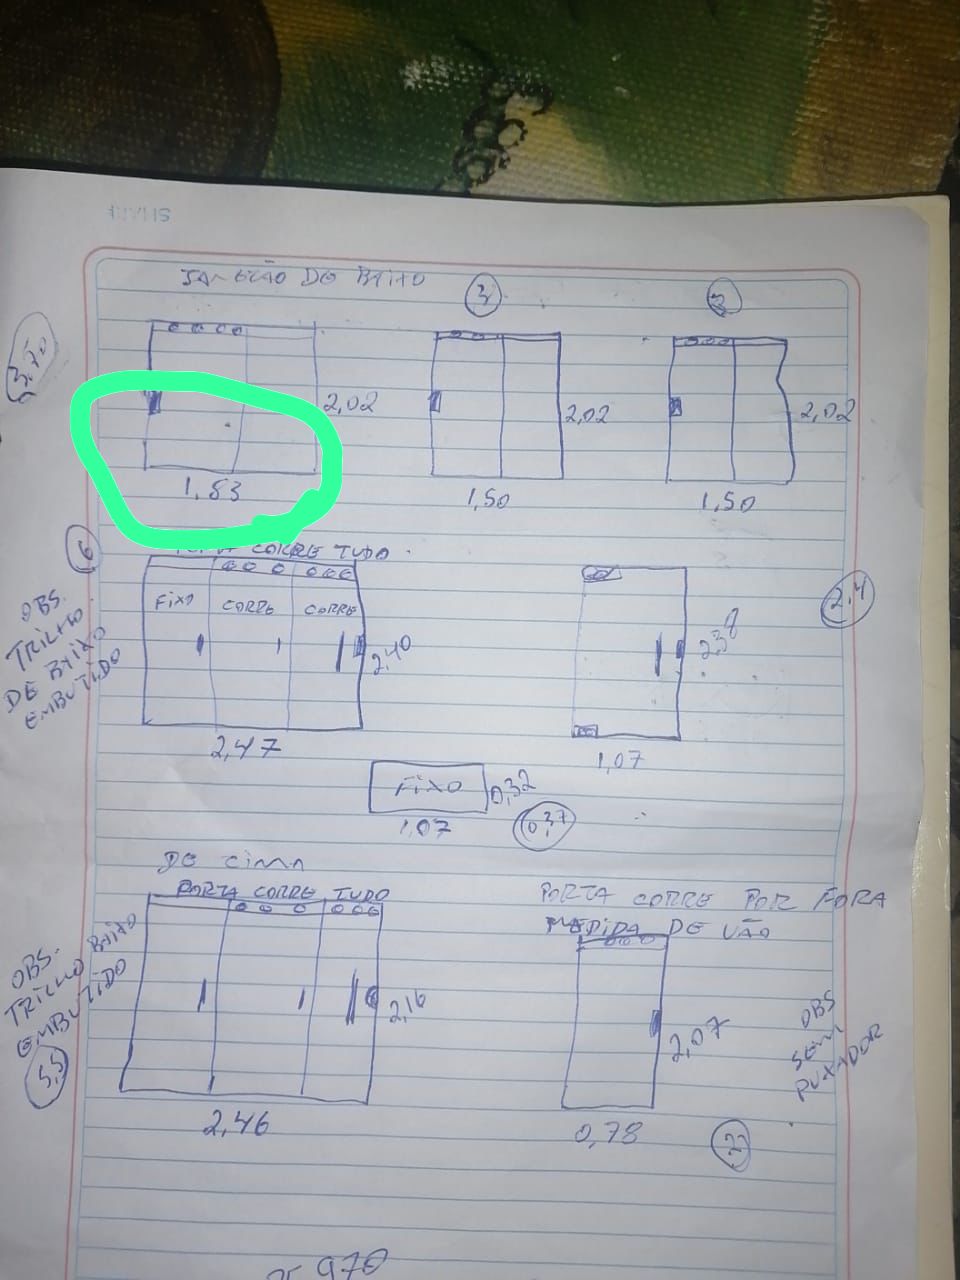 JANELÃO DE BAIXO
3
3
3,70
2,02
2,02
2,02
1,83
1,50
1,50
6
PORTA CORRE TUDO
OBS.
TRILHO
DE BAIXO
EMBUTIDO
FIXO
CORRE
CORRE
2,40
2,47
2,38
1,07
2,4
FIXO
0,32
1,07
0,37
DE CIMA
PORTA CORRE TUDO
OBS.
TRILHO BAIXO
EMBUTIDO
5,5
2,16
2,46
PORTA CORRE POR FORA
MEDIDA DE VÃO
2,07
0,78
OBS
SEM
PUXADOR